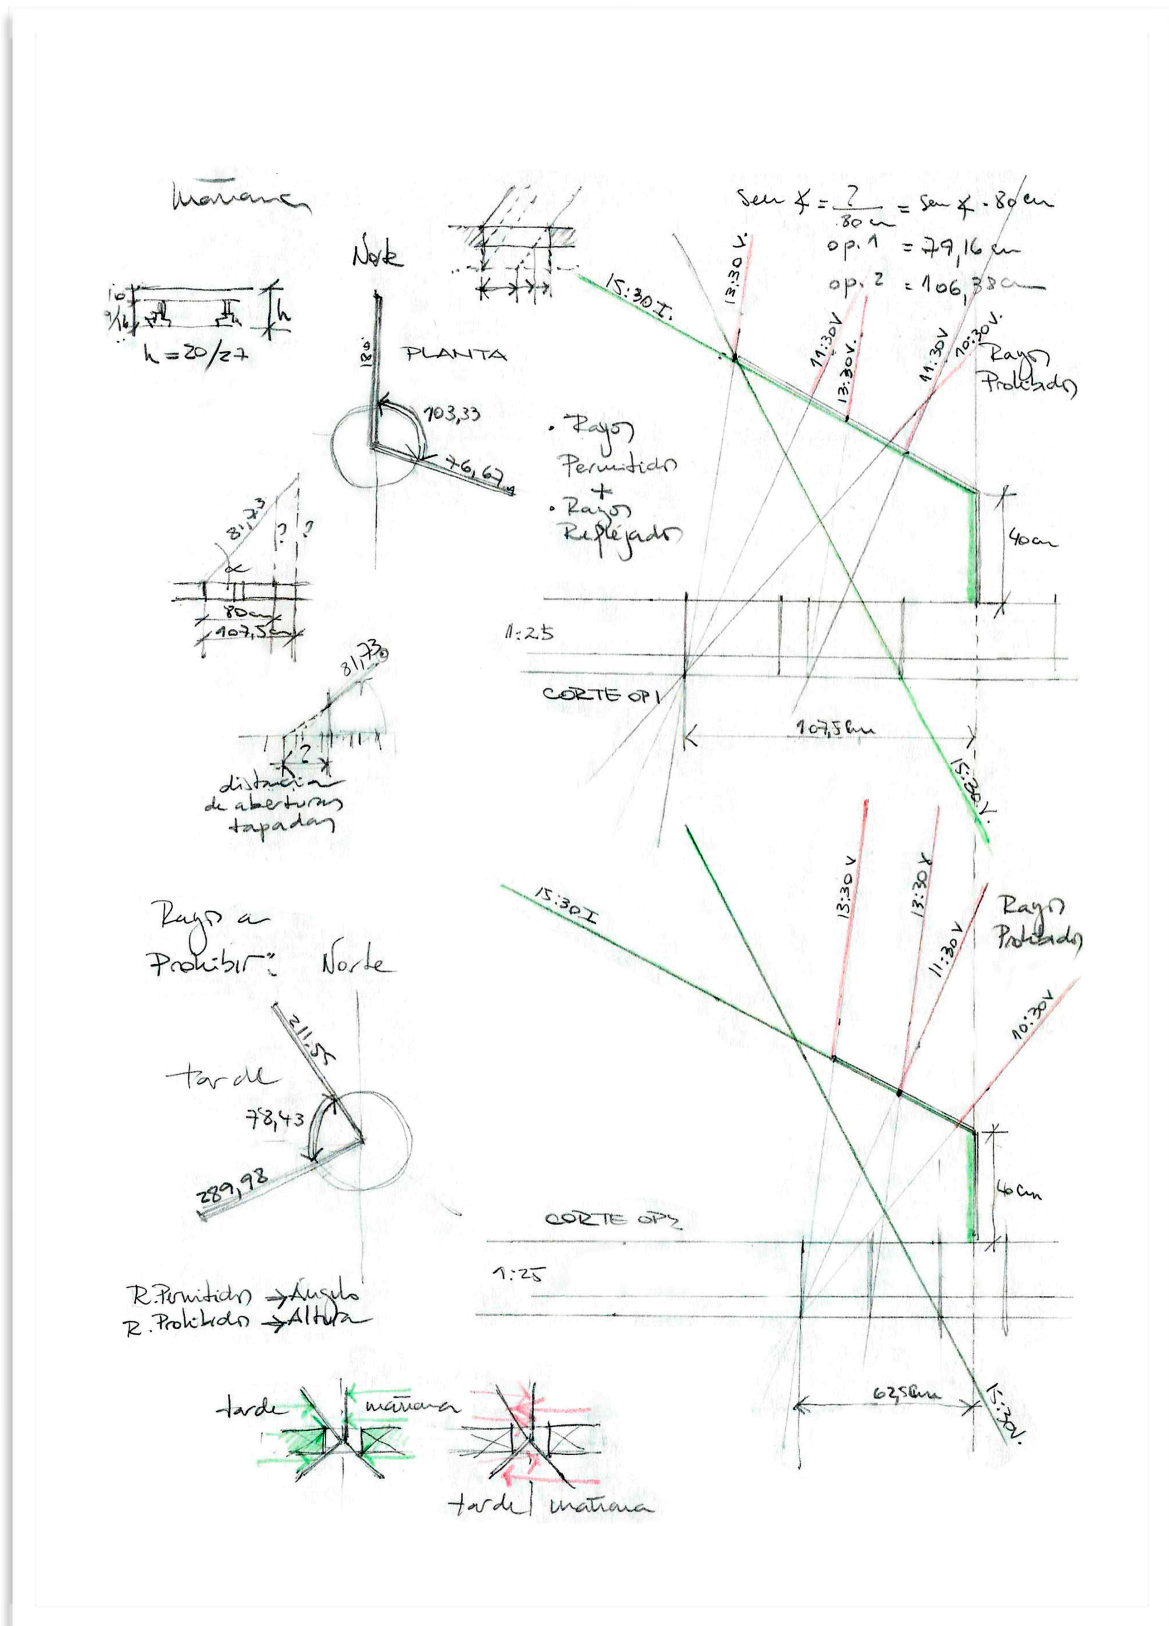 mañana
Norte
10
9/16
h
h = 20/27
180°
PLANTA
103,33
76,67
81,73
?
?
α
80cm
107,5cm
81,73
?
distancia
de aberturas
tapadas
sen ∡ = ?/80cm = sen ∡ . 80cm
op. 1 = 79,16 cm
op. 2 = 106,38cm
15:30 I.
13:30 V.
11:30V
13:30V.
11:30V
10:30V.
Rayos
Prohibidos
• Rayos
Permitidos
+
• Rayos
Reflejados
40cm
1:25
CORTE OP1
107,5cm
15:30V.
Rayos a
Prohibir:
Norte
211.55
tarde
78,43
289,98
R. Permitidos → Ángulo
R. Prohibidos → Altura
15:30I
13:30V
13:30V
11:30V
10:30V
Rayos
Prohibidos
40cm
CORTE OP2
1:25
62,5cm
15:30V.
tarde
mañana
tarde
mañana